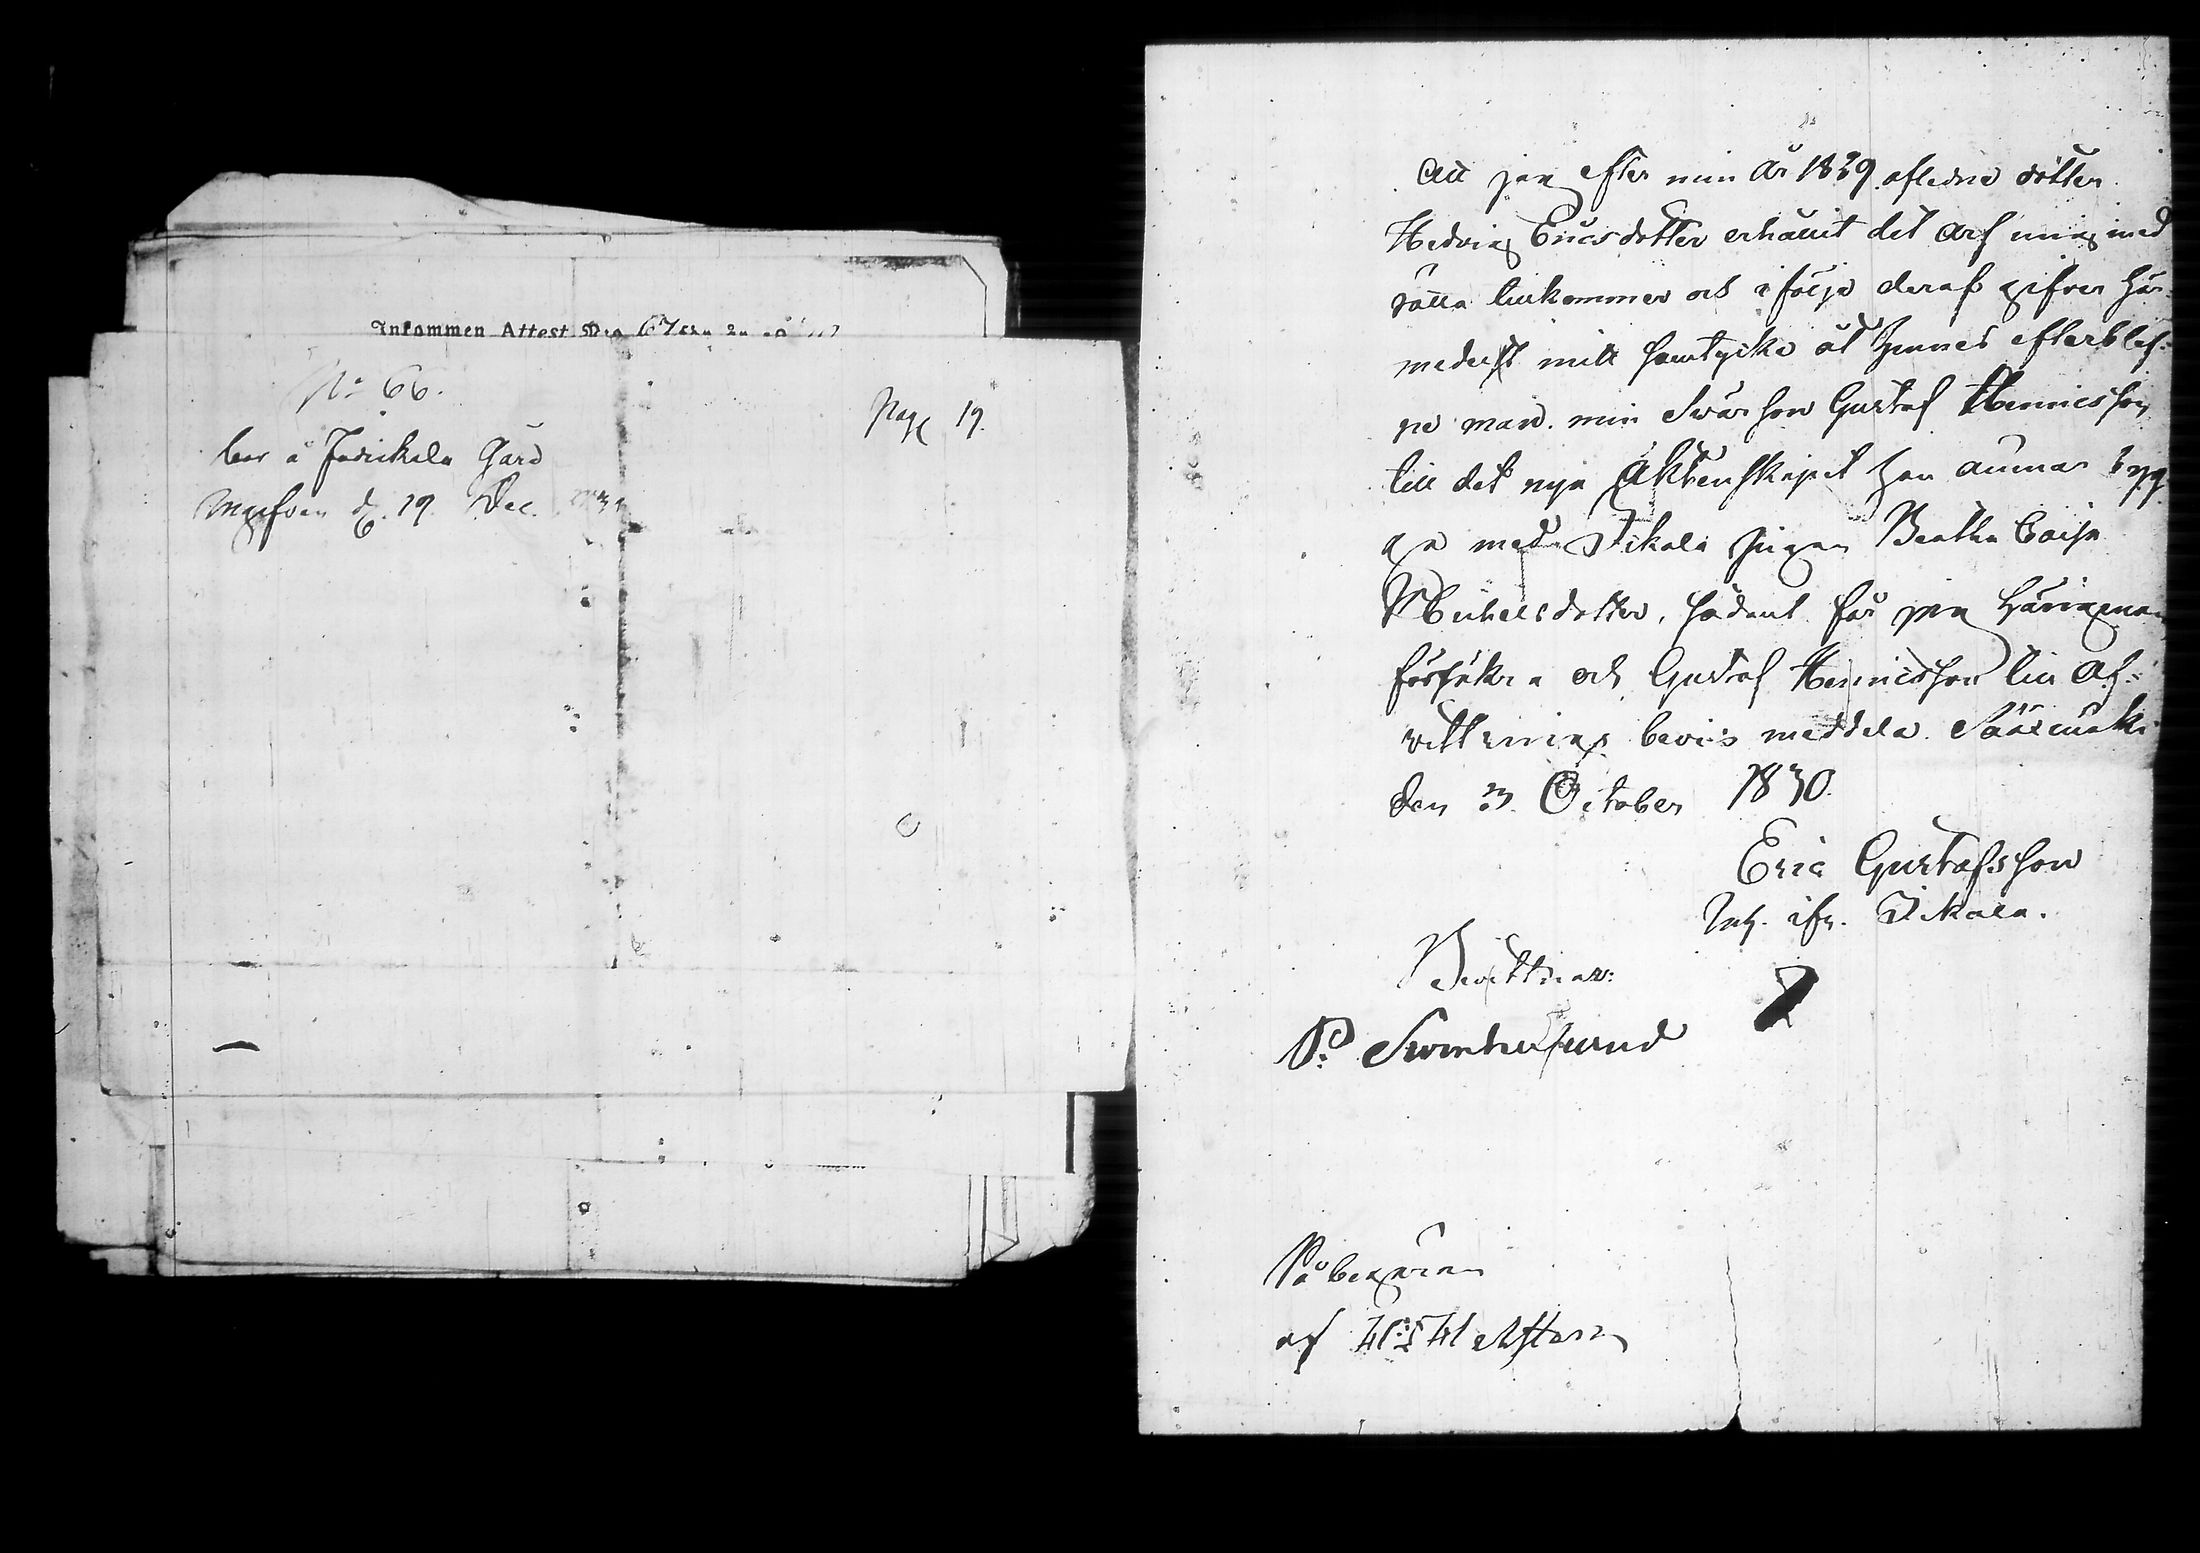 Inkommen Attest N:o 67
N:o 66.
Pag 19.
bor å Jedickala Gård
Uttgifven d. 19 Dec.
Att jag efter min År 1829 aflidne dotter
Hedvig Ericsdotter erhållit det arf mig med
rätta tillkommer och i följe deraf gifver här-
medelst mitt samtycke åt hennes efterblef-
ne man min Svärson Gustaf Henricsson
till det nya Äktenskapet han ämnar byg-
ga med Pikala Pigan Beatha Caisa
Michelsdotter, sådant får jag härigenom
försäkra och Gustaf Henricsson till Af-
vittrings bevis meddela. Säärmäki
den 3 October 1830.
Eric Gustafsson
Inh. ifr. Pikala.
Bevittnar:
P:
På begäran
af